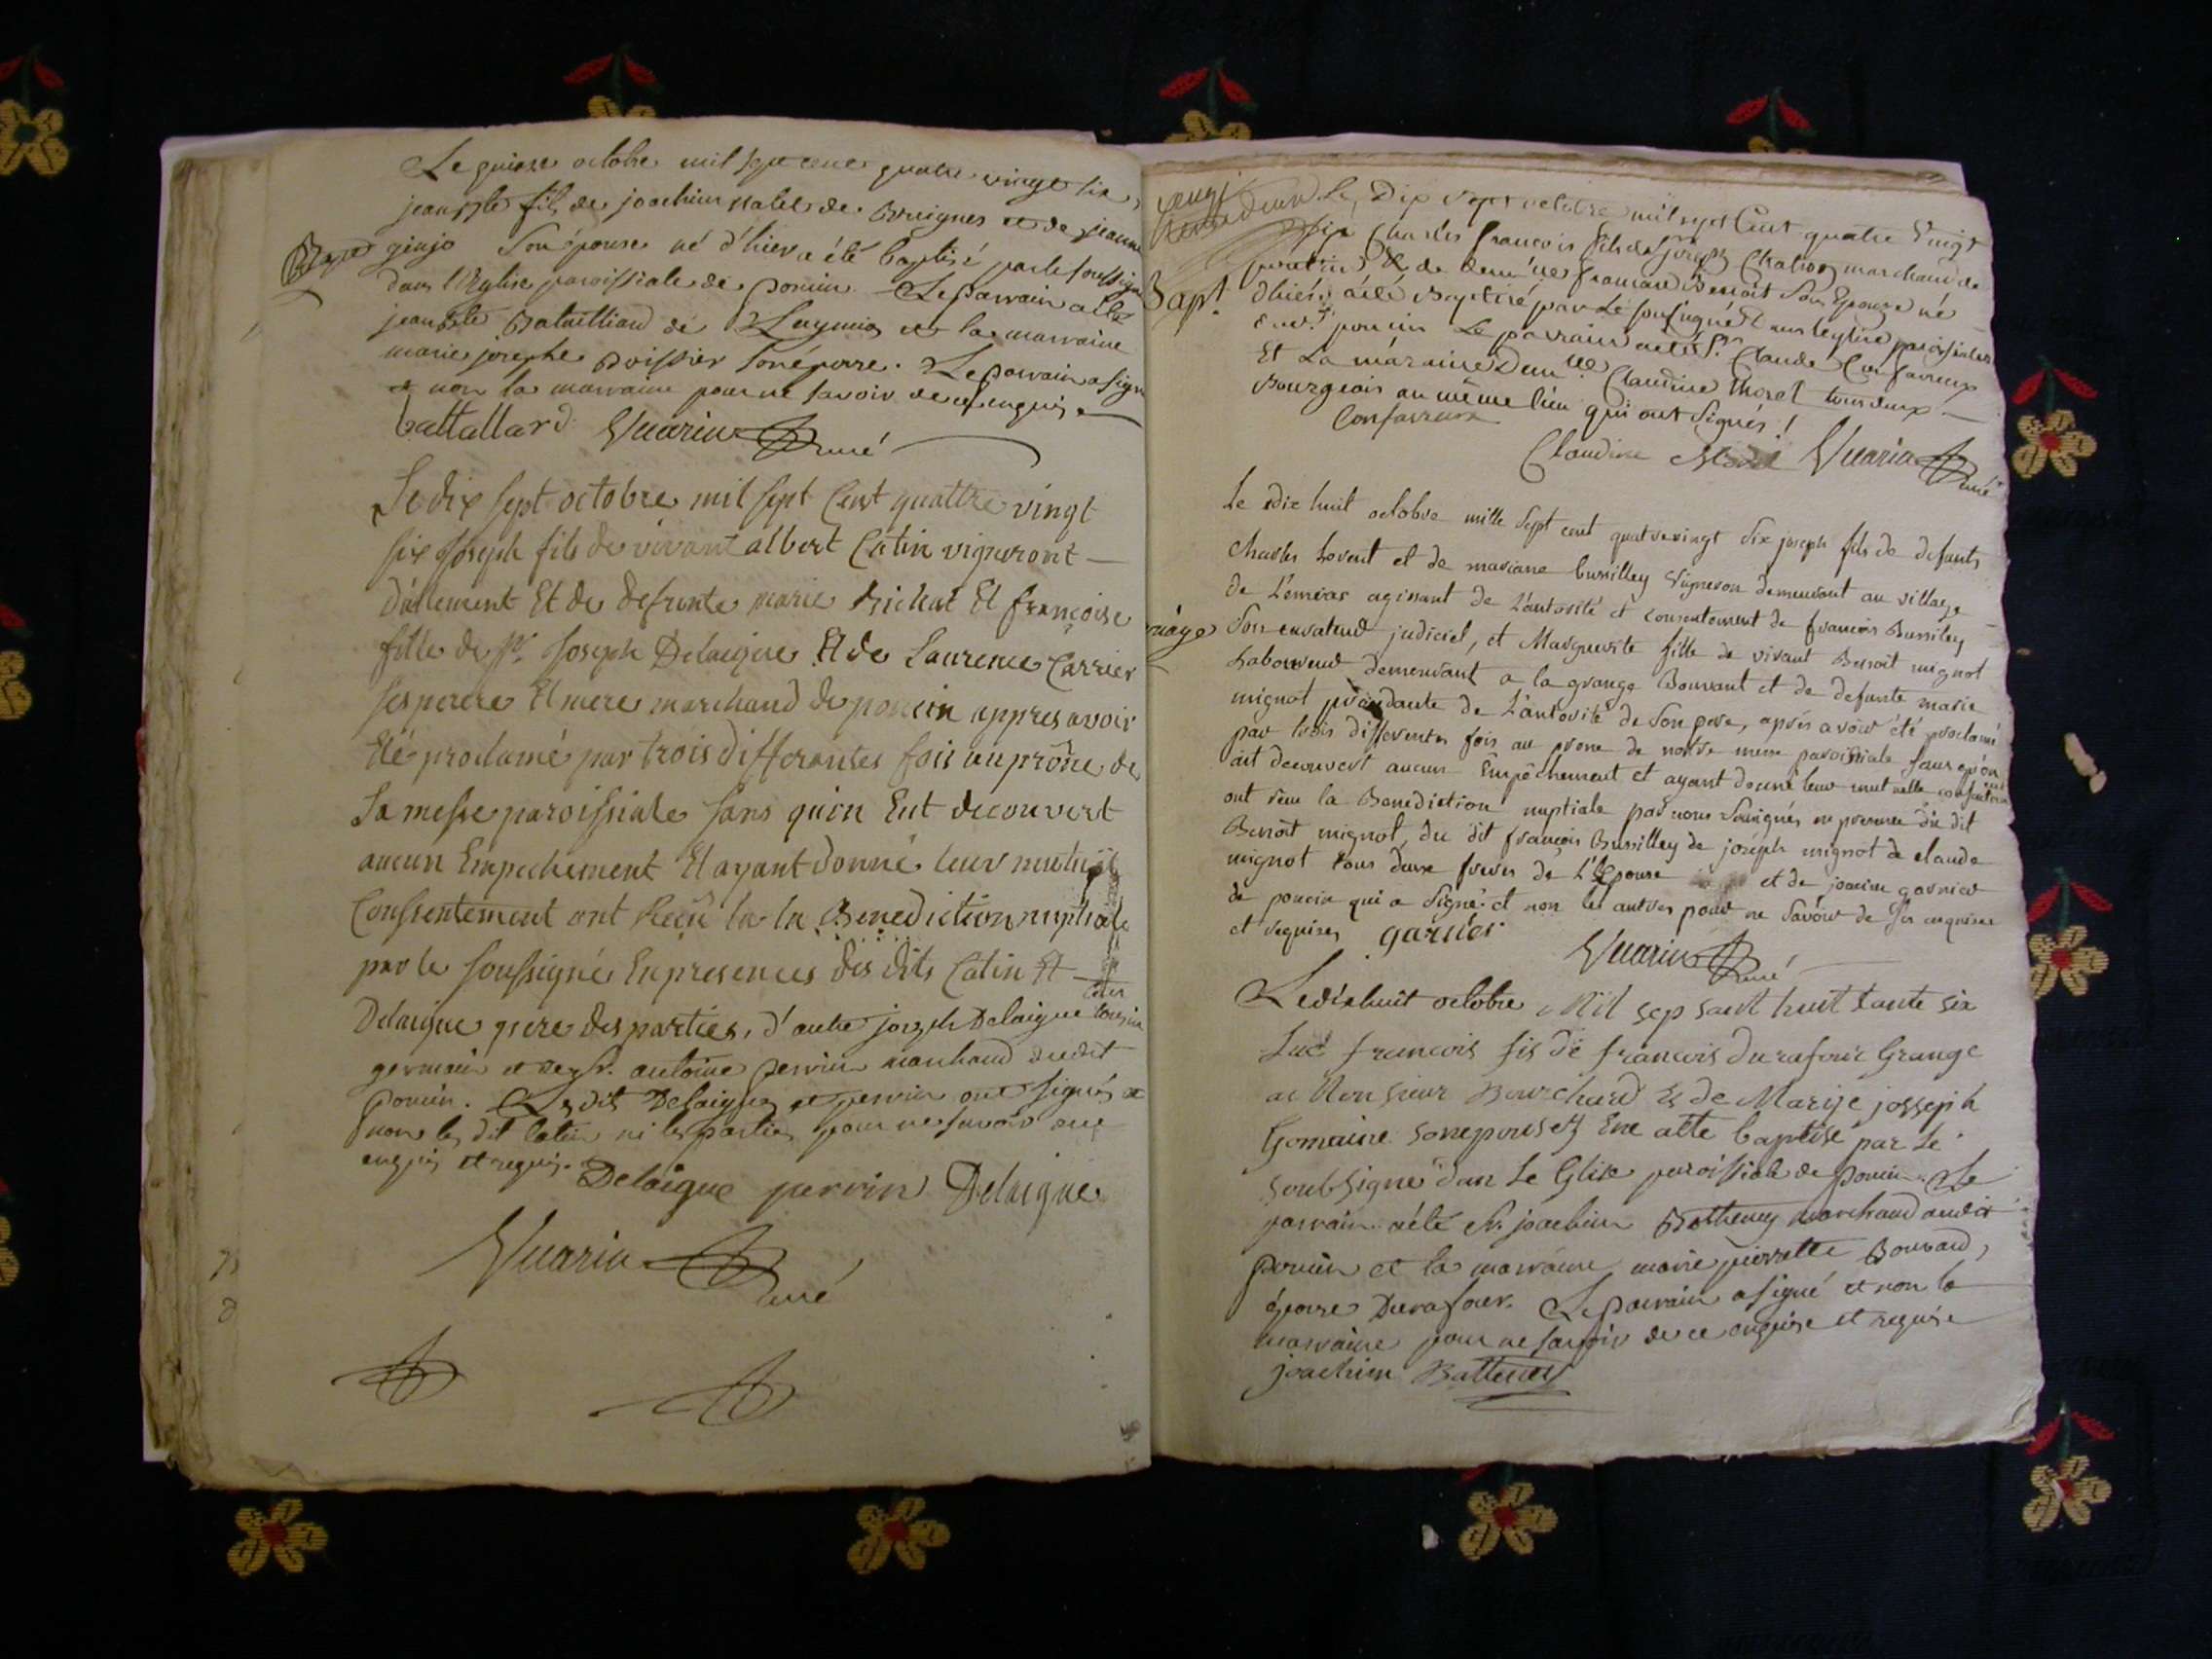 Le quinze octobre mil sept cent quatre vingt six,
jean bte fils de joachim natel de Breignes et de jeanne
Bapt
ginjo son épouse né d'hier a été baptisé par le soussigné
dans l'Eglise paroissiale de poncin. Le parrain a été
jean bte Batailliard de Leymia et la marraine
marie josephe poissier son épouse. Le parrain a signé
et non la marraine pour ne savoir de ce enquise
battallard Vuarin curé
Le dix sept octobre mil sept Cent quattre vingt
six Joseph fils de vivant albert Catin vigneront
d'allement Et de defunte marie Richat Et françoise
fille de sr. Joseph Delaigue Et de Laurence Carrier
ses perere Et mere marchand de poncin appres avoir
Eté proclamé par trois differantes fois au prône de
La messe paroissiale sans qu'on Eut decouvert
aucun Empechement Et ayant donné leur mutuel
Conssentement ont Reçu la la Benediction nuptiale
par le soussigné En presences des dits Catin Et
Delaigue pere des parties, d'autre joseph Delaigue cousin
germain et de sr. antoine perrin marchand dudit
poncin. Les dits Delaigues et perrin ont signés et
non les dit Catin ni les parties pour ne savoir de ce
enquis et requis.
Delaigue perrin Delaigue
Vuarin curé
Le Dix Sept octobre mil sept Cent quatre Vingt
Six Charles francois fils de Joseph Chalion marchand de
poncin & de demlle francoise Benoit Son Epouse né
Bapt.
d'hier a été Baptisé par Le soussigné dans l'eglise paroissiale
dudt poncin Le parrain a été Sr. Claude Confavreux
Et La maraine Demlle Claudine thorel tous deux
Bourgeois au même lieu qui ont signés!
Confavreux
Claudine Vuarin curé
Le dix huit octobre mille Sept cent quatrevingt Six joseph fils de defunts
Charles hovent et de mariane bussilley Vigneron demeurant au village
de L'emeras agissant de L'autorité et consentement de francois Bussilley
riage
Son curateur judiciel, et Marguerite fille de vivant Benoit mignot
Laboureur demeurant a la grange Bouvant et de defunte marie
mignot procedante de L'autorité de Son pere, aprés avoir été proclamé
par trois differentes fois au prone de notre messe paroissiale sans qu'on
ait decouvert aucun Empêchement et ayant donné leur mutuelle consentement
ont reçu la Benediction nuptiale par nous Sousignés en presence du dit
Benoit mignot, du dit françois Bussilley de joséph mignot de claude
mignot tous deux freres de L'Epouse et de joachim garnier
de poncin qui a Signé et non les autres pour ne Savoir de Ses enquises
et requises garnier
Vuarin curé
Le dixhuit octobre Mil sep sant huit tante six
Luc francois fis de francois durafour Grange
ac Monsieur Bourchard Es de Marije josseph
Gomaine sonepouset Ene atte baptise par Le
soubsigné dan Le Glise paroissiale de poncin. Le
parrain a été Sr. joachim Batheney marchand audit
poncin et la marraine marie pierrette Bouvard,
épouse Durafour. Le parrain a signé et non la
marraine pour ne savoir de ce enquise et requise
joachim Batteney